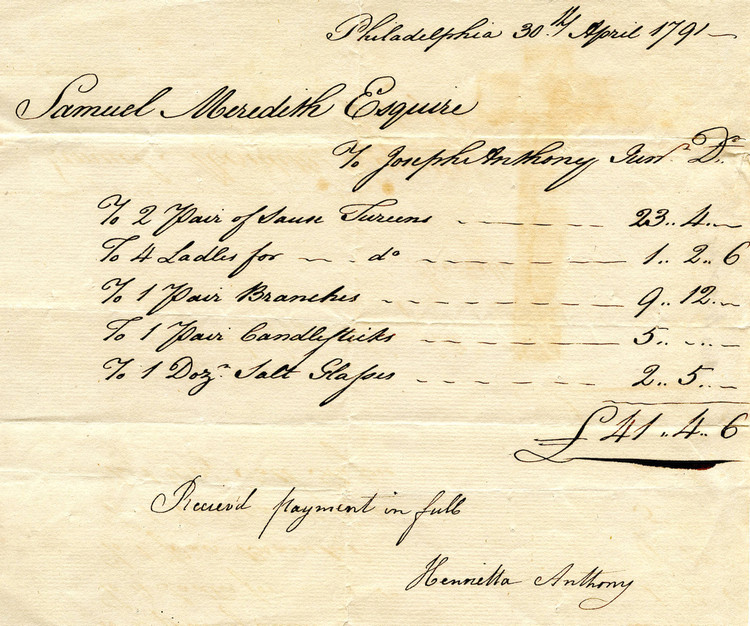 Philadelphia 30th April 1791
Samuel Meredith Esquire
To Joseph Anthony Junr. Dr.
To 2 Pair of Sause Tureens 23.. 4..
To 4 Ladles for do 1.. 2.. 6
To 1 Pair Branches 9.. 12..
To 1 Pair Candlesticks 5..
To 1 Dozn. Salt Glasses 2.. 5..
£ 41.. 4.. 6
Recievd payment in full
Henrietta Anthony